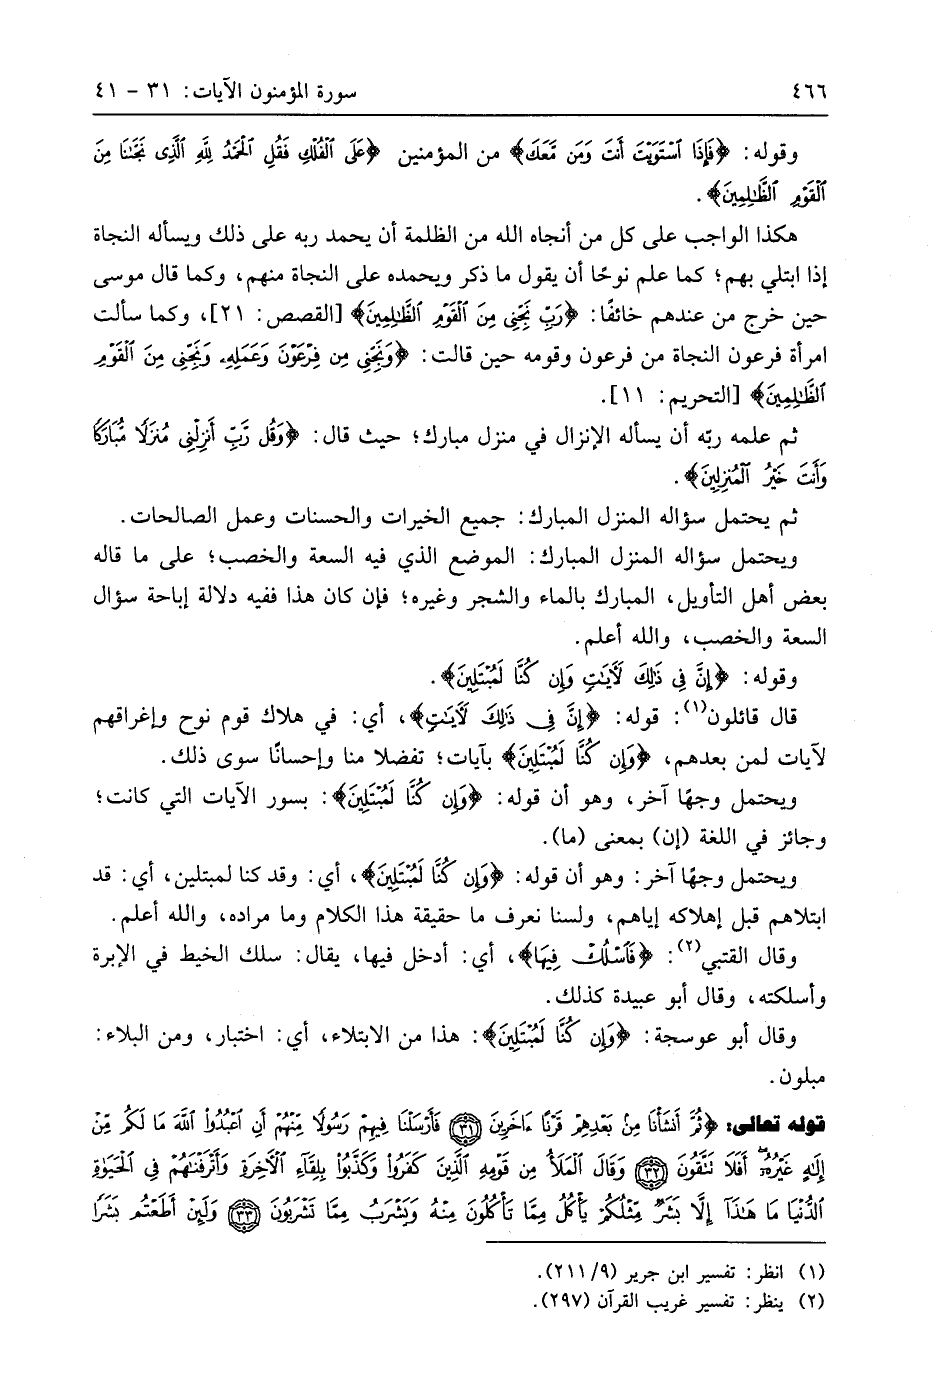 ٤٦٦ سورة المؤمنون الآيات: ٣١ - ٤١
وقوله: ﴿فَإِذَا ٱسْتَوَيْتَ أَنتَ وَمَن مَّعَكَ﴾ من المؤمنين ﴿عَلَى ٱلْفُلْكِ فَقُلِ ٱلْحَمْدُ لِلَّهِ ٱلَّذِى نَجَّىٰنَا مِنَ
ٱلْقَوْمِ ٱلظَّٰلِمِينَ﴾.
هكذا الواجب على كل من أنجاه الله من الظلمة أن يحمد ربه على ذلك ويسأله النجاة
إذا ابتلي بهم؛ كما علم نوحًا أن يقول ما ذكر ويحمده على النجاة منهم، وكما قال موسى
حين خرج من عندهم خائفًا: ﴿رَبِّ نَجِّنِى مِنَ ٱلْقَوْمِ ٱلظَّٰلِمِينَ﴾ [القصص: ٢١]، وكما سألت
امرأة فرعون النجاة من فرعون وقومه حين قالت: ﴿وَنَجِّنِى مِن فِرْعَوْنَ وَعَمَلِهِۦ وَنَجِّنِى مِنَ ٱلْقَوْمِ
ٱلظَّٰلِمِينَ﴾ [التحريم: ١١].
ثم علمه ربّه أن يسأله الإنزال في منزل مبارك؛ حيث قال: ﴿وَقُل رَّبِّ أَنزِلْنِى مُنزَلًا مُّبَارَكًا
وَأَنتَ خَيْرُ ٱلْمُنزِلِينَ﴾.
ثم يحتمل سؤاله المنزل المبارك: جميع الخيرات والحسنات وعمل الصالحات.
ويحتمل سؤاله المنزل المبارك: الموضع الذي فيه السعة والخصب؛ على ما قاله
بعض أهل التأويل، المبارك بالماء والشجر وغيره؛ فإن كان هذا ففيه دلالة إباحة سؤال
السعة والخصب، والله أعلم.
وقوله: ﴿إِنَّ فِى ذَٰلِكَ لَأٓيَٰتٍ وَإِن كُنَّا لَمُبْتَلِينَ﴾.
قال قائلون(١): قوله: ﴿إِنَّ فِى ذَٰلِكَ لَأٓيَٰتٍ﴾، أي: في هلاك قوم نوح وإغراقهم
لآيات لمن بعدهم، ﴿وَإِن كُنَّا لَمُبْتَلِينَ﴾ بآيات؛ تفضلا منا وإحسانًا سوى ذلك.
ويحتمل وجهًا آخر، وهو أن قوله: ﴿وَإِن كُنَّا لَمُبْتَلِينَ﴾: بسور الآيات التي كانت؛
وجائز في اللغة (إن) بمعنى (ما).
ويحتمل وجهًا آخر: وهو أن قوله: ﴿وَإِن كُنَّا لَمُبْتَلِينَ﴾، أي: وقد كنا لمبتلين، أي: قد
ابتلاهم قبل إهلاكه إياهم، ولسنا نعرف ما حقيقة هذا الكلام وما مراده، والله أعلم.
وقال القتبي(٢): ﴿فَٱسْلُكْ فِيهَا﴾، أي: أدخل فيها، يقال: سلك الخيط في الإبرة
وأسلكته، وقال أبو عبيدة كذلك.
وقال أبو عوسجة: ﴿وَإِن كُنَّا لَمُبْتَلِينَ﴾: هذا من الابتلاء، أي: اختبار، ومن البلاء:
مبلون.
قوله تعالى: ﴿ثُمَّ أَنشَأْنَا مِنۢ بَعْدِهِمْ قَرْنًا ءَاخَرِينَ ٣١ فَأَرْسَلْنَا فِيهِمْ رَسُولًا مِّنْهُمْ أَنِ ٱعْبُدُوا۟ ٱللَّهَ مَا لَكُم مِّنْ
إِلَٰهٍ غَيْرُهُۥٓ أَفَلَا تَتَّقُونَ ٣٢ وَقَالَ ٱلْمَلَأُ مِن قَوْمِهِ ٱلَّذِينَ كَفَرُوا۟ وَكَذَّبُوا۟ بِلِقَآءِ ٱلْأَخِرَةِ وَأَتْرَفْنَٰهُمْ فِى ٱلْحَيَوٰةِ
ٱلدُّنْيَا مَا هَٰذَآ إِلَّا بَشَرٌ مِّثْلُكُمْ يَأْكُلُ مِمَّا تَأْكُلُونَ مِنْهُ وَيَشْرَبُ مِمَّا تَشْرَبُونَ ٣٣ وَلَئِنْ أَطَعْتُم بَشَرًا
(١) انظر: تفسير ابن جرير (٢١١/٩).
(٢) ينظر: تفسير غريب القرآن (٢٩٧).